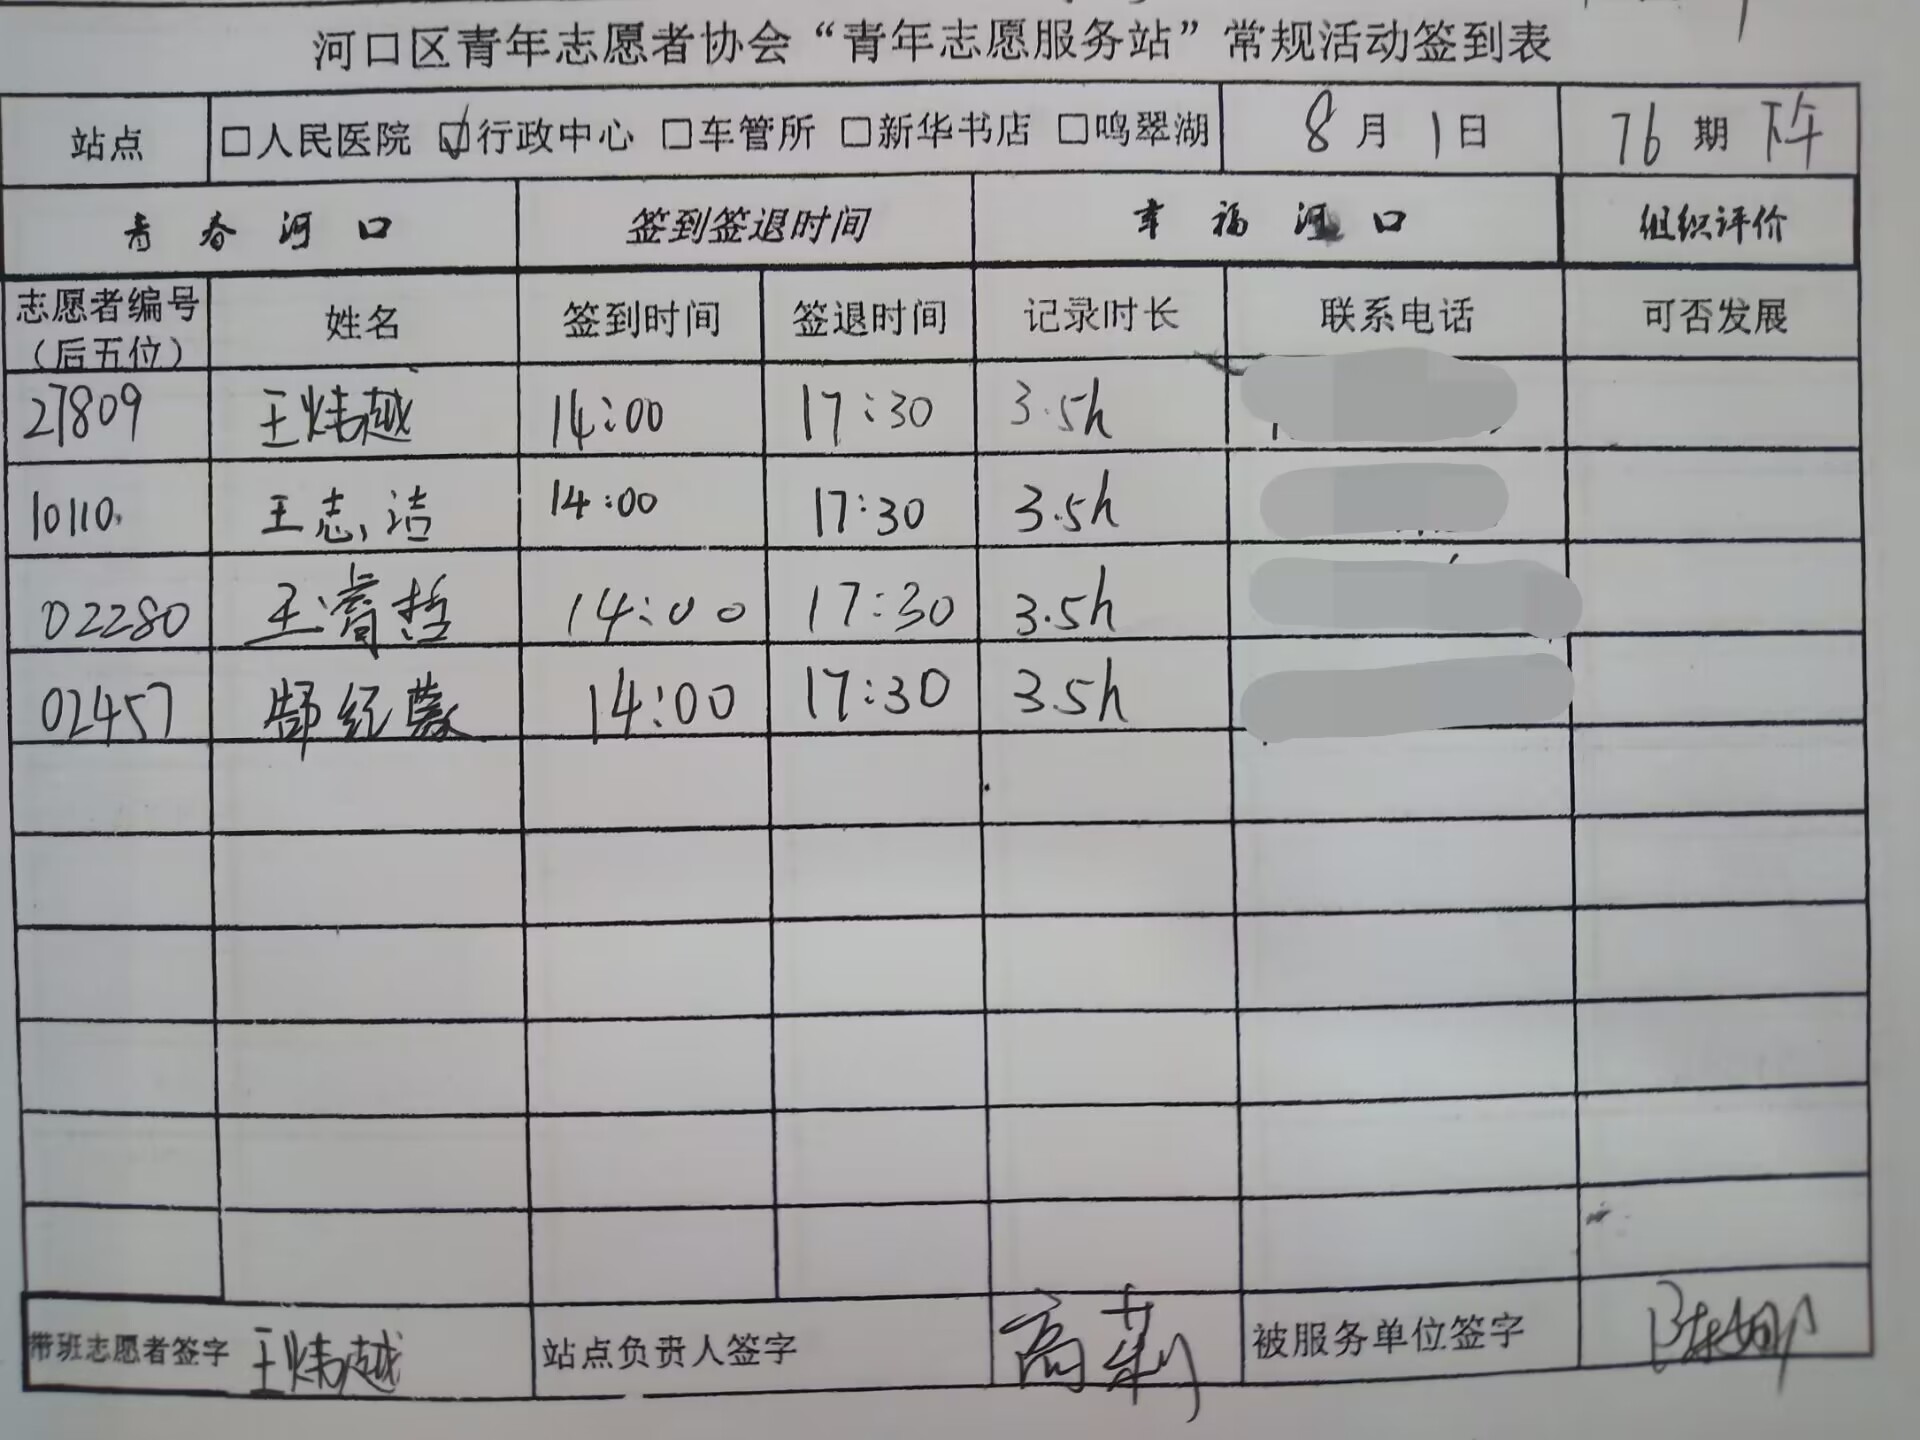 河口区青年志愿者协会“青年志愿服务站”常规活动签到表
站点 □人民医院 ☑行政中心 □车管所 □新华书店 □鸣翠湖 8月1日 76期 下午
青春河口 签到签退时间 幸福河口 组织评价
志愿者编号（后五位） 姓名 签到时间 签退时间 记录时长 联系电话 可否发展
27809 王炜越 14:00 17:30 3.5h
10110 王志洁 14:00 17:30 3.5h
02280 王睿哲 14:00 17:30 3.5h
02457 14:00 17:30 3.5h
带班志愿者签字 王炜越 站点负责人签字 高莉 被服务单位签字 陈娜